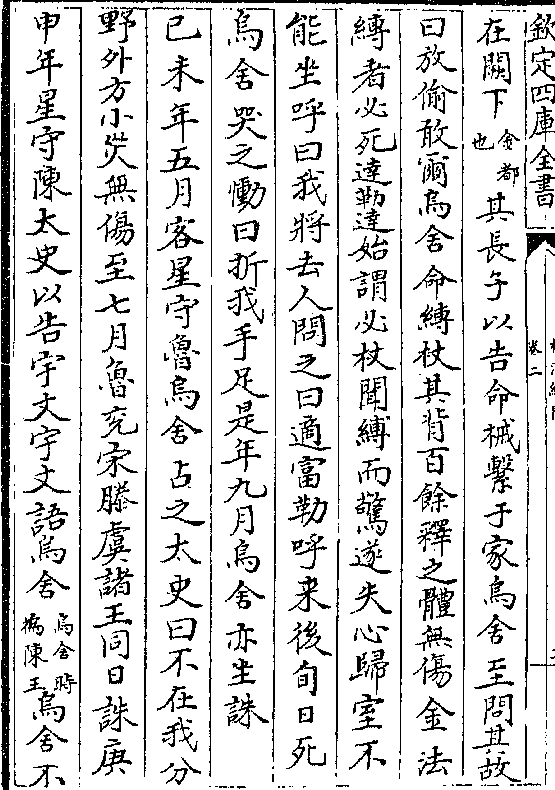 欽定四庫全書
卷二
在闕下金都也其長子以告命械繫于家烏舍至問其故
曰放偷敢爾烏舍命縛杖其背百餘釋之體無傷金法
縛者必死達勒達始謂必杖聞縛而驚遂失心歸室不
能坐呼曰我將去人問之曰適富勒呼来後旬日死
烏舍哭之慟曰折我手足是年九月烏舍亦坐誅
己未年五月客星守魯烏舍占之太史曰不在我分
野外方小災無傷至七月魯兖宋滕虞諸王同日誅庚
申年星守陳太史以告宇文宇文語烏舍烏舍時為陳王烏舍不